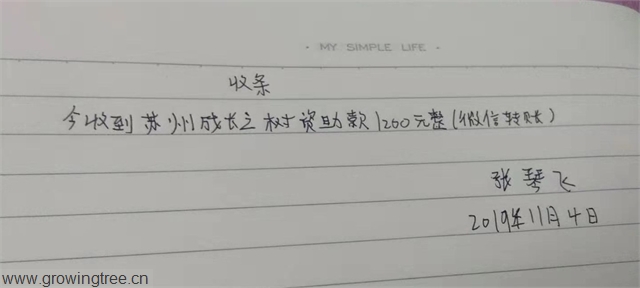 · MY SIMPLE LIFE ·
收条
今收到苏州成长之树资助款1200元整(微信转账)
张琴飞
2019年11月4日
www.growingtree.cn